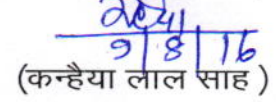 9|8|16
(कन्हैया लाल साह )